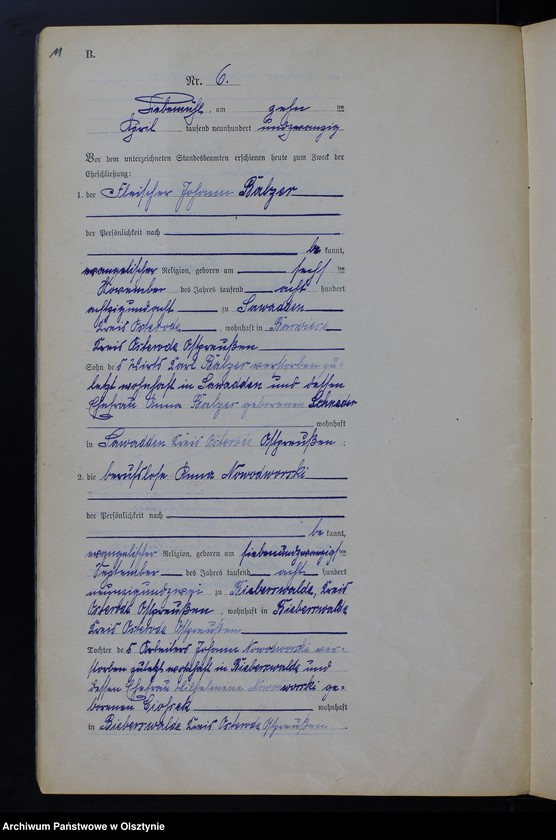 11
B.
Nr. 6.
Liebemühl, am zehn ten
April tausend neunhundert undzwanzig
Vor dem unterzeichneten Standesbeamten erschienen heute zum Zweck der
Eheschließung:
1. der Fleischer Johann Balzer
der Persönlichkeit nach
be kannt,
evangelischer Religion, geboren am sechs ten
November des Jahres tausend acht hundert
achtzigundacht zu Sawadden
Kreis Osterode, wohnhaft in
Kreis Osterode Ostpreußen
Sohn des Wirts Karl Balzer verstorben zu-
letzt wohnhaft in Sawadden und dessen
Ehefrau Anna Balzer geborenen
wohnhaft
in Sawadden Kreis Osterode Ostpreußen;
2. die berufslose Anna Nowodworski
der Persönlichkeit nach
be kannt,
evangelischer Religion, geboren am siebenundzwanzigs ten
September des Jahres tausend acht hundert
neunzigundzwei zu Bieberswalde, Kreis
Osterode Ostpreußen, wohnhaft in Bieberswalde
Kreis Osterode Ostpreußen
Tochter des Arbeiters Johann Nowodworski ver-
storben zuletzt wohnhaft in Bieberswalde und
dessen Ehefrau Wilhelmine Nowodworski ge-
borenen
wohnhaft
in Bieberswalde Kreis Osterode Ostpreußen
Archiwum Państwowe w Olsztynie